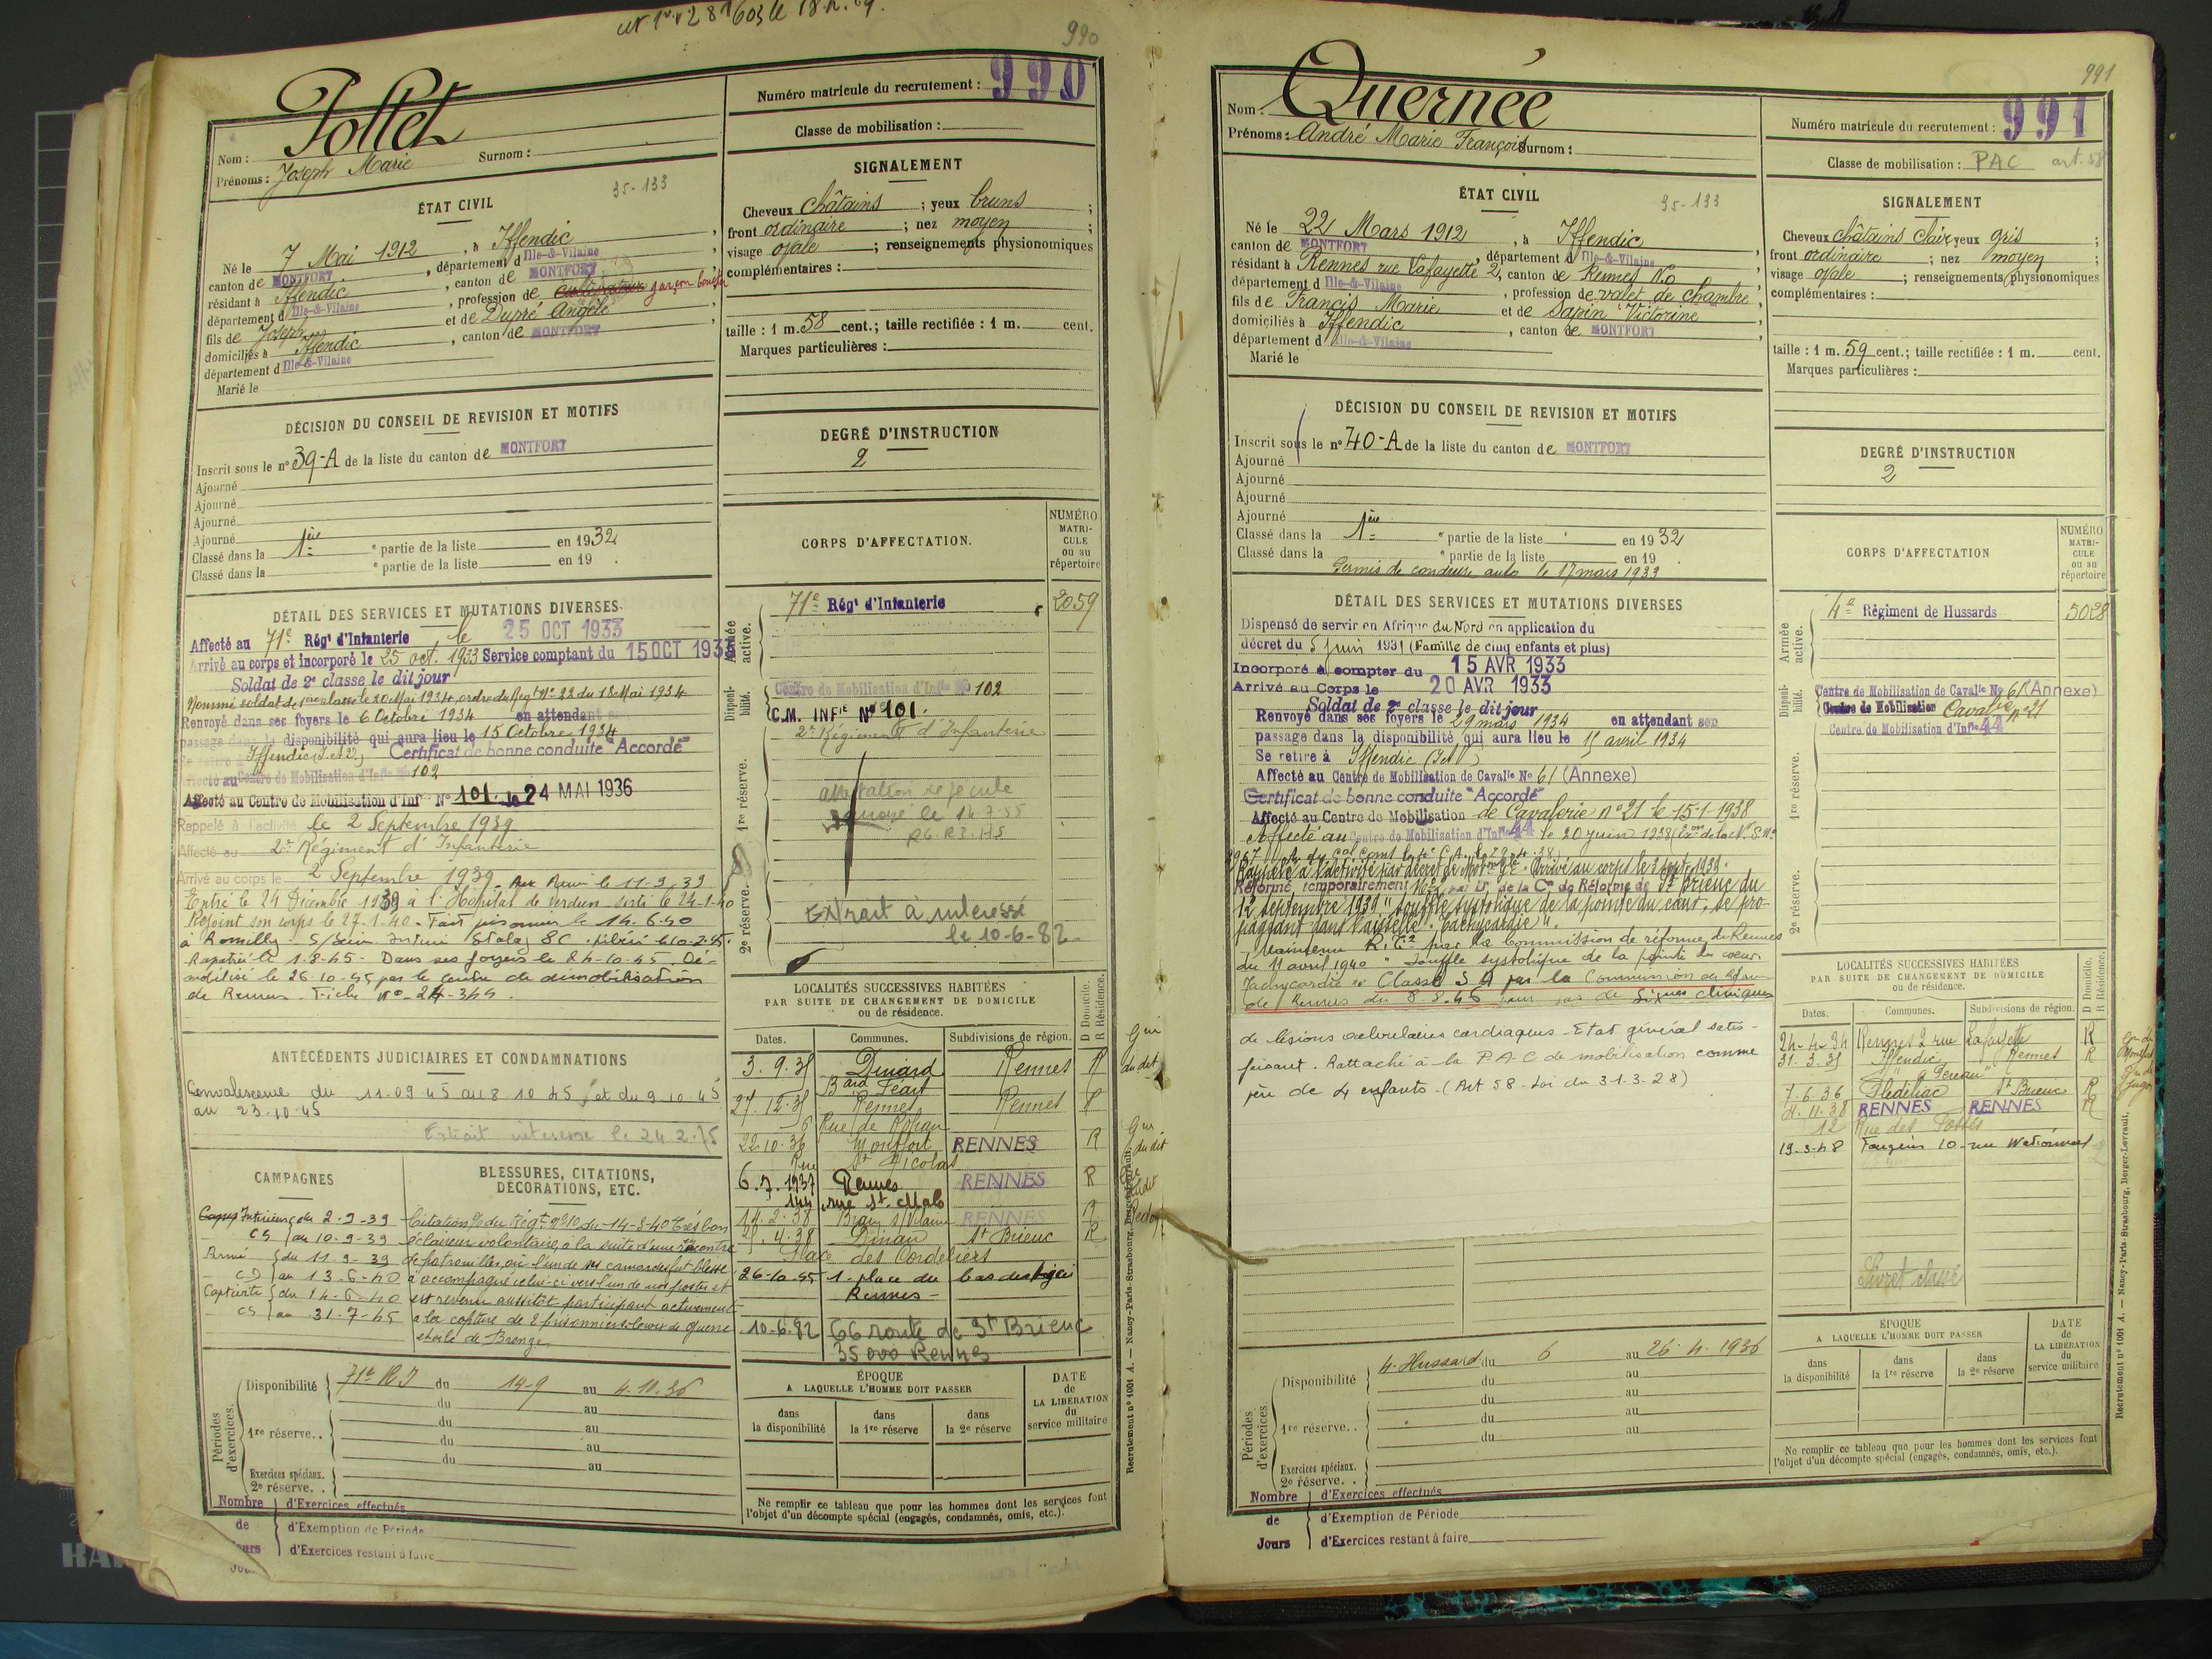 990
Nom : Pollet
Prénoms : Joseph Marie Surnom :
Numéro matricule du recrutement : 990
Classe de mobilisation :
ÉTAT CIVIL
35-133
Né le 7 Mai 1912, à Iffendic,
canton de MONTFORT, département d Ille-&-Vilaine,
résidant à Iffendic, canton de MONTFORT
département d Ille-&-Vilaine, profession de cultivateur garçon boucher
fils de Joseph et de Dupré Angèle
domiciliés à Iffendic, canton de MONTFORT,
département d Ille-&-Vilaine
Marié le
SIGNALEMENT
Cheveux châtains ; yeux bruns ;
front ordinaire ; nez moyen ;
visage ovale ; renseignements physionomiques
complémentaires :
taille : 1 m. 58 cent.; taille rectifiée : 1 m. cent.
Marques particulières :
DÉCISION DU CONSEIL DE REVISION ET MOTIFS
Inscrit sous le nº 39-A de la liste du canton de MONTFORT
Ajourné
Ajourné
Ajourné
Ajourné
Classé dans la 1ère e partie de la liste en 1932
Classé dans la e partie de la liste en 19 .
DEGRÉ D'INSTRUCTION
2
CORPS D'AFFECTATION.
NUMÉRO MATRICULE ou au répertoire
Armée active.
71e Régt d'Infanterie 2059
Disponibilité.
Centre de Mobilisation d'Infie No 102
C.M. INFIE Nº 101.
2e Régiment d'Infanterie
1re réserve.
2e réserve.
Extrait à intéressé
le 10-6-82
DÉTAIL DES SERVICES ET MUTATIONS DIVERSES.
Affecté au 71e Régt d'Infanterie, le 25 OCT 1933
Arrivé au corps et incorporé le 25 oct. 1933 Service comptant du 15 OCT 1933
Soldat de 2e classe le dit jour
Nommé soldat de 1ère classe le 20 Mai 1934, ordre du Régt Nº 22 du 18 Mai 1934
Renvoyé dans ses foyers le 6 Octobre 1934 en attendant son
passage dans la disponibilité qui aura lieu le 15 Octobre 1934
Se retire à Iffendic (I. et V.) Certificat de bonne conduite "Accordé"
Affecté au Centre de Mobilisation d'Infie No 102
Affecté au Centre de Mobilisation d'Inf Nº 101. le 24 MAI 1936
Rappelé à l'activité le 2 Septembre 1939
Affecté au 2e Régiment d'Infanterie
Arrivé au corps le 2 Septembre 1939. Aux Armées le 11-9-39
Entré le 24 Décembre 1939 à l'Hôpital de Verdun. Sorti le 24-1-40
Rejoint son corps le 27-1-40. Fait prisonnier le 14-6-40
à Romilly S/Seine Interné Stalag 8C. libéré le 10-2-45.
Rapatrié le 1-8-45. Dans ses foyers le 24-10-45. Dé-
mobilisé le 26-10-45 par le centre de démobilisation
de Rennes. Fiche Nº 24-344.
ANTÉCÉDENTS JUDICIAIRES ET CONDAMNATIONS
Convalescence du 11-09 45 au 8 10 45, et du 9 10 45
au 23.10.45
Extrait intéressé le 24.2.75
CAMPAGNES
Intérieur du 2-9-39
CS au 10-9-39
Armée du 11-9-39
CD au 13-6-40
Captivité du 14-6-40
CS au 31-7-45
BLESSURES, CITATIONS, DÉCORATIONS, ETC.
Citation O/ du Régt nº10 du 14-3-40 Très bon
éclaireur volontaire, à la suite d'une rencontre
de patrouilles, où l'un de ses camarades fut blessé
a accompagné celui-ci vers l'un de nos postes et
est revenu aussitôt participant activement
à la capture de 2 prisonniers. Croix de guerre
étoile de Bronze
LOCALITÉS SUCCESSIVES HABITÉES
PAR SUITE DE CHANGEMENT DE DOMICILE
ou de résidence.
Dates. Communes. Subdivisions de région. D Domicile. R Résidence.
3.9.35 Dinard Rennes R
Bard Féart
27.12.35 Rennes Rennes R
6 Rue de Rohan
22.10.36 Montfort RENNES R
Rue St Nicolas
6.7.1937 Rennes RENNES R
144 rue St. Malo
14.2.38 Brain s/Vilaine RENNES R
21.4.38 Dinan St Brieuc R
Place des Cordeliers
26-10-45 1. place du bas des lices
Rennes -
10-6.82 66 route de St Brieuc
35000 Rennes
Périodes d'exercices.
Disponibilité 71e RI du 14-9 au 4.10.36
du au
1re réserve. . du au
du au
du au
Exercices spéciaux.
2e réserve. .
Nombre de Jours
d'Exercices effectués
d'Exemption de Période
d'Exercices restant à faire
ÉPOQUE
A LAQUELLE L'HOMME DOIT PASSER
dans la disponibilité
dans la 1re réserve
dans la 2e réserve
DATE de LA LIBÉRATION du service militaire
Ne remplir ce tableau que pour les hommes dont les services font
l'objet d'un décompte spécial (engagés, condamnés, omis, etc.).
Recrutement nº 1001 A. — Nancy-Paris-Strasbourg, Berger-Levrault.
991
Nom : Quernée
Prénoms : André Marie François Surnom :
Numéro matricule du recrutement : 991
Classe de mobilisation : PAC art. 58
ÉTAT CIVIL
35-133
Né le 22 Mars 1912, à Iffendic
canton de MONTFORT, département d Ille-&-Vilaine
résidant à Rennes rue Lafayette 2, canton de Rennes N.O
département d Ille-&-Vilaine, profession de valet de chambre,
fils de Francis Marie et de Sapin Victorine
domiciliés à Iffendic, canton de MONTFORT,
département d Ille-&-Vilaine
Marié le
SIGNALEMENT
Cheveux châtains clair yeux gris ;
front ordinaire ; nez moyen ;
visage ovale ; renseignements physionomiques
complémentaires :
taille : 1 m. 59 cent.; taille rectifiée : 1 m. cent.
Marques particulières :
DÉCISION DU CONSEIL DE REVISION ET MOTIFS
Inscrit sous le nº 40-A de la liste du canton de MONTFORT
Ajourné
Ajourné
Ajourné
Ajourné
Classé dans la 1ère e partie de la liste en 1932
Classé dans la e partie de la liste en 19 .
Permis de conduire auto le 17 mars 1933
DEGRÉ D'INSTRUCTION
2
CORPS D'AFFECTATION
NUMÉRO MATRICULE ou au répertoire
Armée active.
4e Régiment de Hussards 5028
Disponibilité.
Centre de Mobilisation de Cavalie No 61 (Annexe)
Centre de Mobilisation Cavalerie nº 21
Centre de Mobilisation d'Infie 44
1re réserve.
2e réserve.
DÉTAIL DES SERVICES ET MUTATIONS DIVERSES
Dispensé de servir en Afrique du Nord en application du
décret du 5 juin 1931 (Famille de cinq enfants et plus)
Incorporé à compter du 15 AVR 1933
Arrivé au Corps le 20 AVR 1933
Soldat de 2e classe le dit jour
Renvoyé dans ses foyers le 29 mars 1934 en attendant son
passage dans la disponibilité qui aura lieu le 15 avril 1934
Se retire à Iffendic (I et V)
Affecté au Centre de Mobilisation de Cavalie No 61 (Annexe)
Certificat de bonne conduite "Accordé"
Affecté au Centre de Mobilisation de Cavalerie nº 21 le 15-1-1938
Affecté au Centre de Mobilisation d'Infie 44 le 20 juin 1938
Rappelé à l'activité par décret de Mobon Gle. Arrivé au corps le 3 sept. 1939.
Réformé temporairement Nº2 par Don de la Con de Réforme de St Brieuc du
12 septembre 1939 "souffle systolique de la pointe du cœur, se pro-
pageant dans l'aisselle. Tachycardie".
Maintenu R.T.2 par la Commission de réforme de Rennes
du 11 avril 1940 "Souffle systolique de la pointe du cœur.
Tachycardie" Classé S A par la Commission de réforme
de Rennes du 8-8-46 pour pas de signes cliniques
de lésions valvulaires cardiaques - Etat général satis-
faisant. Rattaché à la P-A-C de mobilisation comme
père de 4 enfants. (Art 58 - Loi du 31-3-28)
LOCALITÉS SUCCESSIVES HABITÉES
PAR SUITE DE CHANGEMENT DE DOMICILE
ou de résidence.
Dates. Communes. Subdivisions de région. D Domicile. R Résidence.
24-4-34 Rennes 2 rue Lafayette R
31.3.35 Iffendic Rennes R
7.6.36 Plédéliac St Brieuc R
21.11.38 RENNES RENNES R
12 Rue des Fossés
19-3-48 Fougères 10 - rue Nationale
Livret classé
Périodes d'exercices.
Disponibilité 4. Hussard du 6 au 26.4.1936
du au
du au
1re réserve. . du au
du au
Exercices spéciaux.
2e réserve. .
Nombre de Jours
d'Exercices effectués
d'Exemption de Période
d'Exercices restant à faire
ÉPOQUE
A LAQUELLE L'HOMME DOIT PASSER
dans la disponibilité
dans la 1re réserve
dans la 2e réserve
DATE de LA LIBÉRATION du service militaire
Ne remplir ce tableau que pour les hommes dont les services font
l'objet d'un décompte spécial (engagés, condamnés, omis, etc.).
Recrutement nº 1001 A. — Nancy-Paris-Strasbourg, Berger-Levrault.